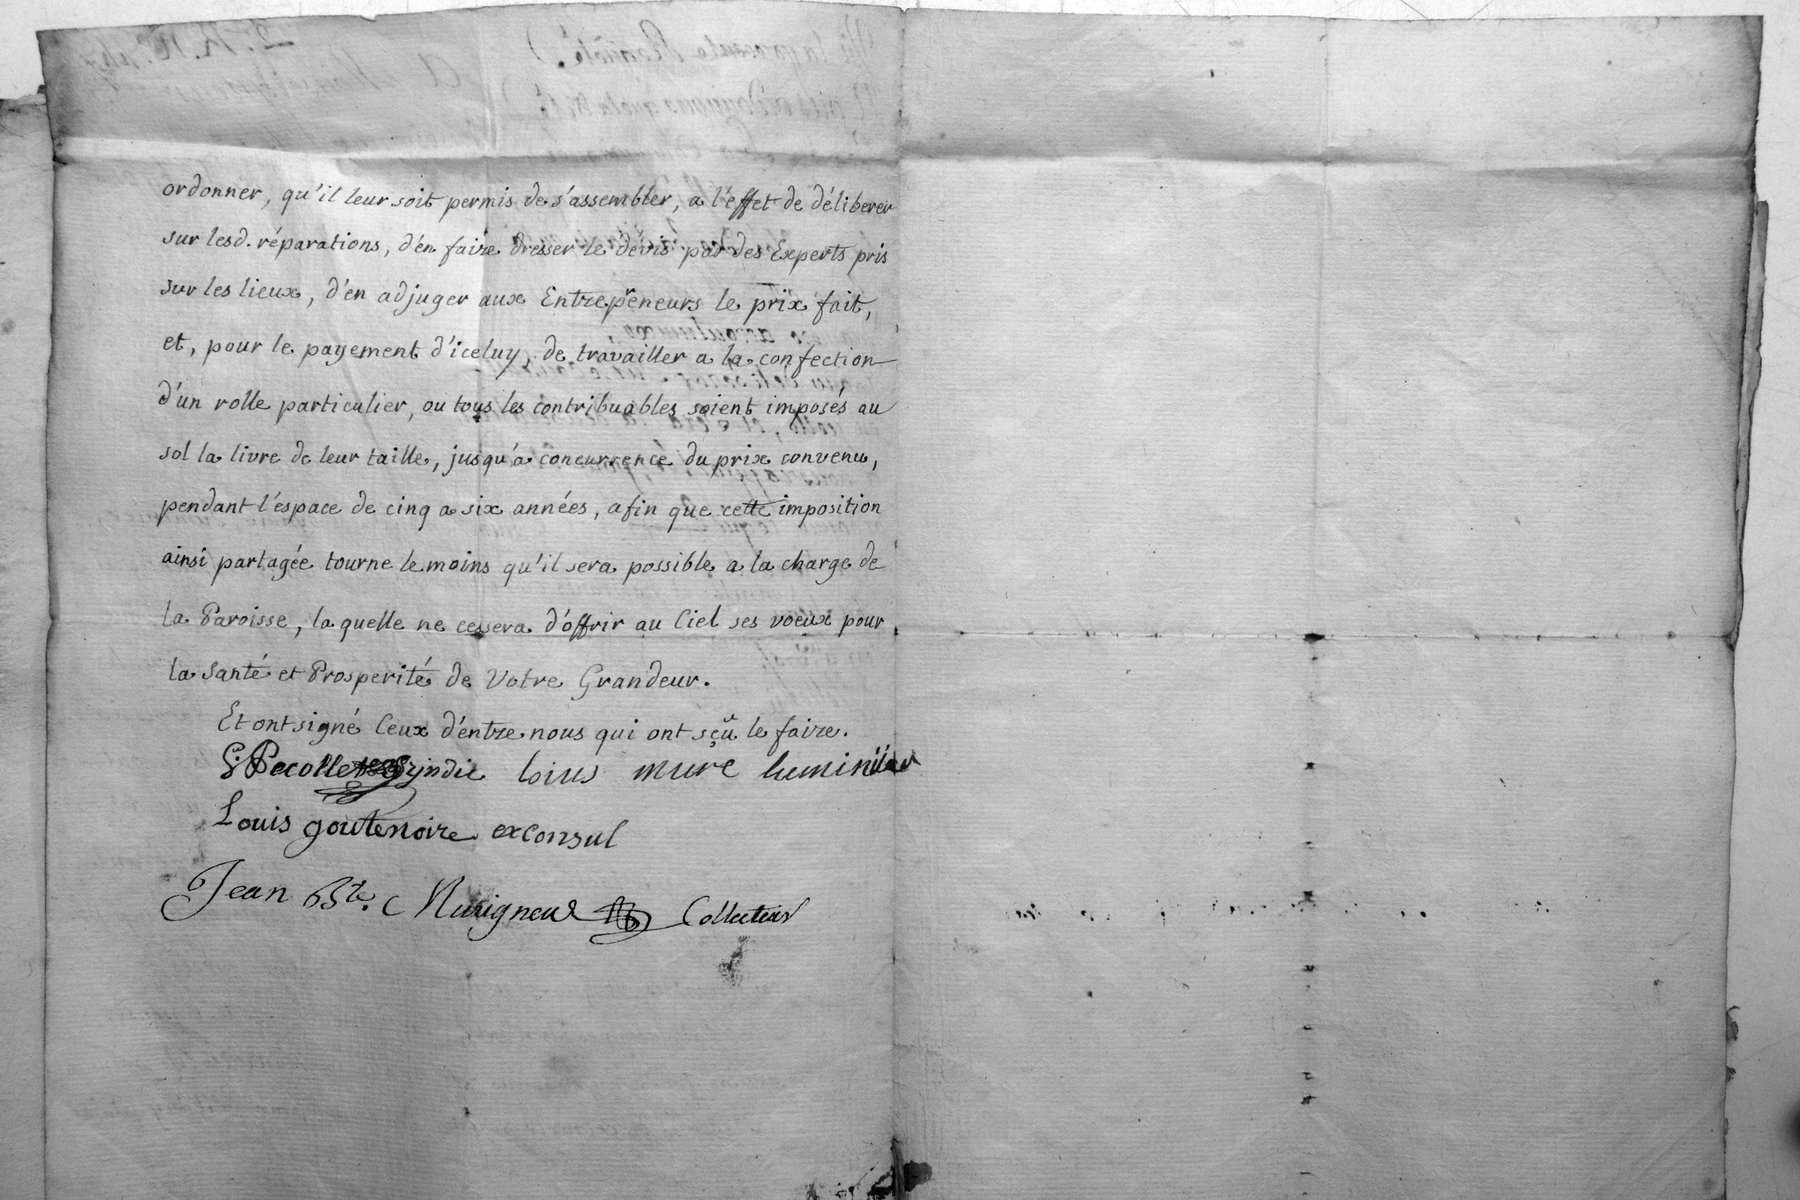 ordonner, qu'il leur soit permis de s'assembler, a l'éffet de déliberer
sur lesd. réparations, d'en faire dresser le devis par des Experts pris
sur les lieux, d'en adjuger aux Entrepreneurs le prix fait,
et, pour le payement d'iceluy, de travailler a la confection
d'un rolle particulier, ou tous les contribuables soient imposés au
sol la livre de leur taille, jusqu'a concurrence du prix convenu,
pendant l'éspace de cinq a six années, afin que cette imposition
ainsi partagée tourne le moins qu'il sera possible a la charge de
la Paroisse, la quelle ne cessera d'offrir au Ciel ses voeux pour
la Santé et Prosperité de Votre Grandeur.
Et ont signé Ceux d'éntre nous qui ont sçu le faire.
Syndic loius mure luminiier
Louis goutenoire exconsul
Jean Bte. Collecteur